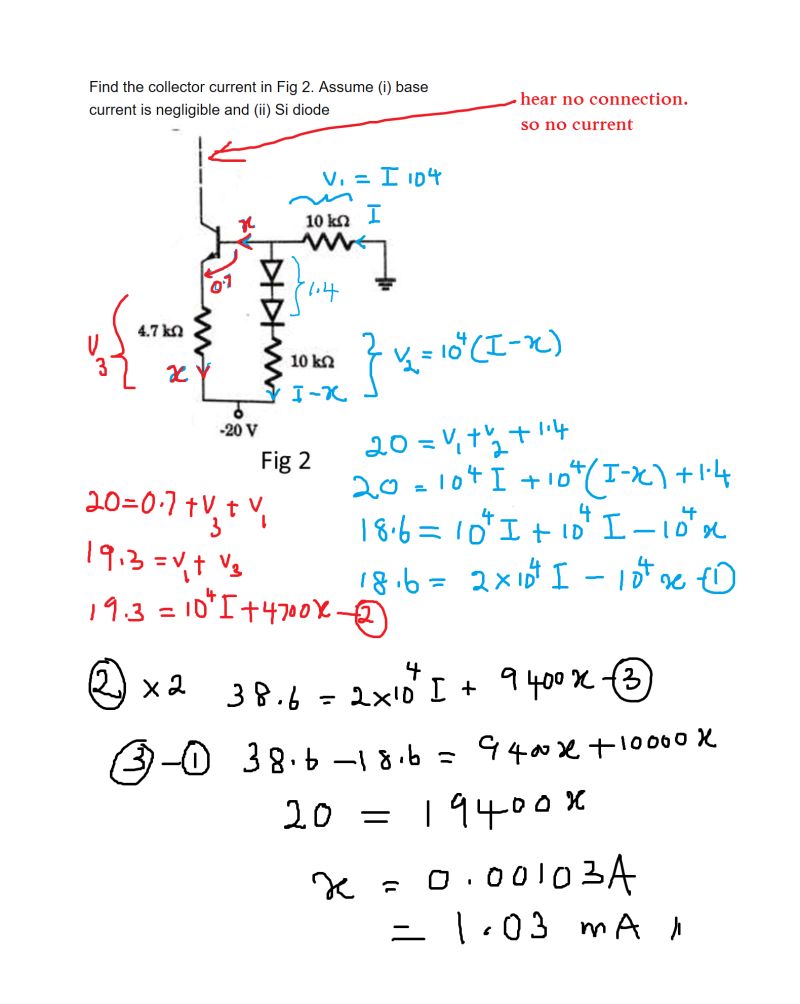 Find the collector current in Fig 2. Assume (i) base
current is negligible and (ii) Si diode
hear no connection.
so no current
V₁ = I 10⁴
10 kΩ
I
x
0.7
1.4
4.7 kΩ
V₃
x
10 kΩ
V₂ = 10⁴(I-x)
I-x
-20 V
Fig 2
20 = V₁+V₂+1.4
20 = 10⁴I + 10⁴(I-x)+1.4
18.6 = 10⁴I + 10⁴I - 10⁴x
18.6 = 2×10⁴I - 10⁴x -①
20=0.7+V₃+V₁
19.3 = V₁+V₃
19.3 = 10⁴I+4700x -②
② ×2 38.6 = 2×10⁴I + 9400x -③
③-① 38.6-18.6 = 9400x+10000x
20 = 19400x
x = 0.00103A
= 1.03 mA //